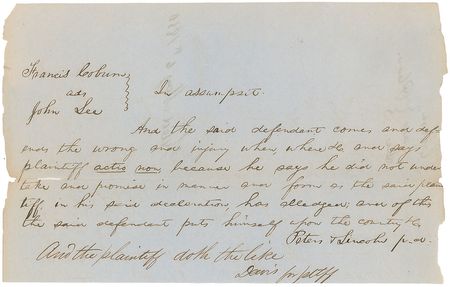 Francis Coburn
ads
John Lee
In assumpsit.
And the said defendant comes and def-
ends the wrong and injury when, where &c and says
plaintiff actio non, because he says he did not under
take and promise in manner and form as the said plain
tiff in his said declaration, has alledged; and of this
the said defendant puts himself upon the country &c,
Peters & Lincoln p.d.
And the plaintiff doth the like
Davis for plff